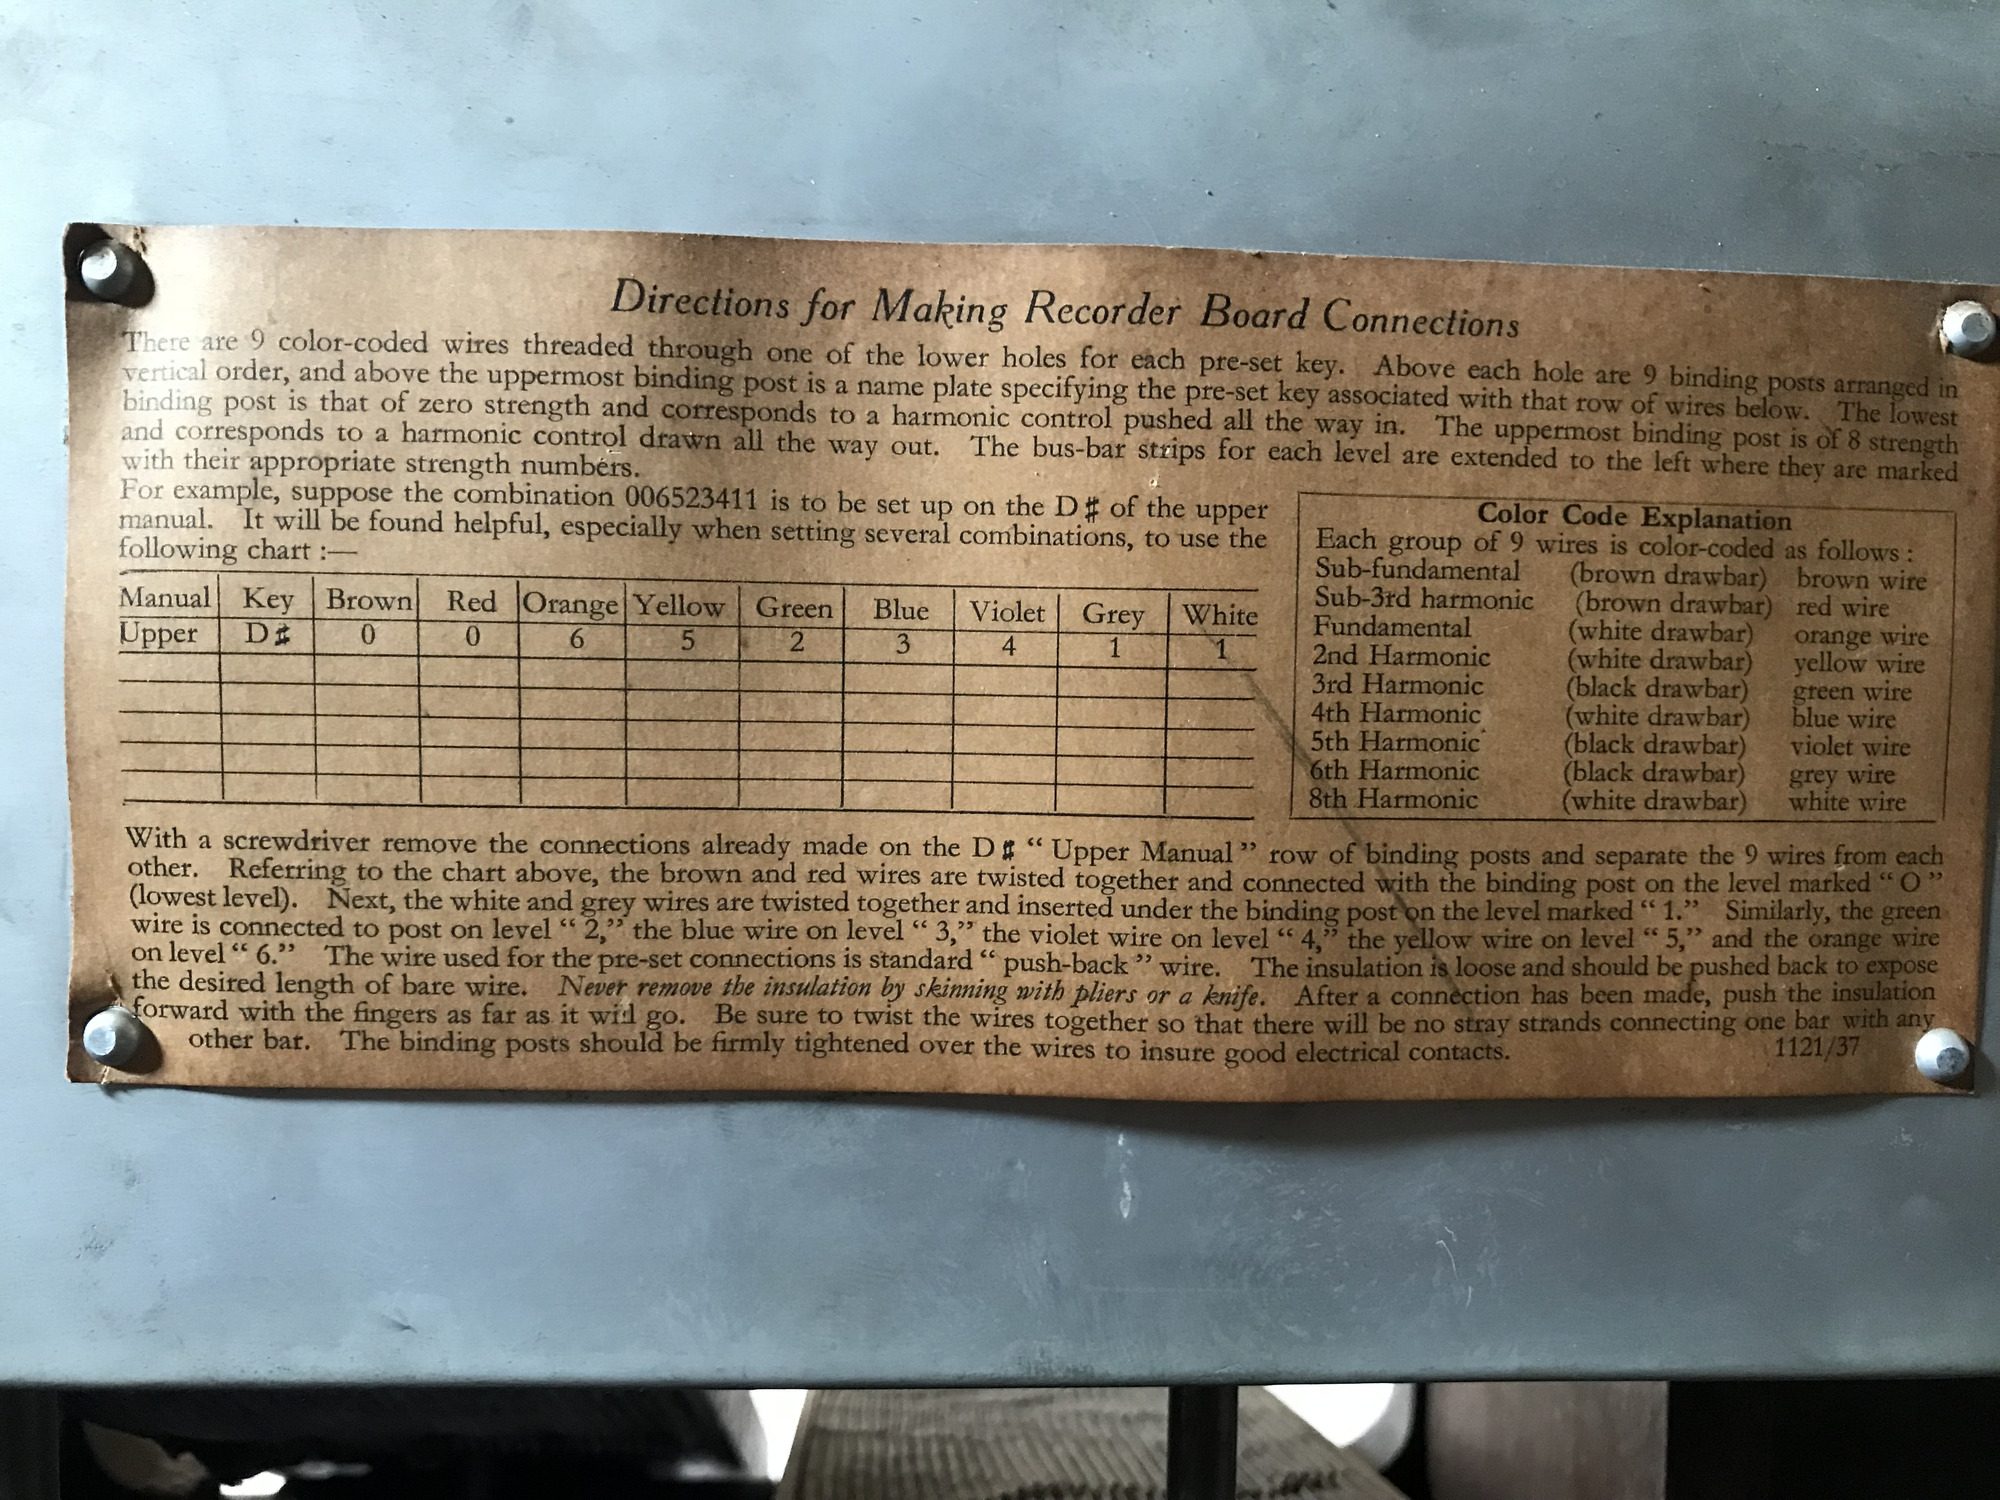 Directions for Making Recorder Board Connections
There are 9 color-coded wires threaded through one of the lower holes for each pre-set key. Above each hole are 9 binding posts arranged in
vertical order, and above the uppermost binding post is a name plate specifying the pre-set key associated with that row of wires below. The lowest
binding post is that of zero strength and corresponds to a harmonic control pushed all the way in. The uppermost binding post is of 8 strength
and corresponds to a harmonic control drawn all the way out. The bus-bar strips for each level are extended to the left where they are marked
with their appropriate strength numbers.
For example, suppose the combination 006523411 is to be set up on the D♯ of the upper
manual. It will be found helpful, especially when setting several combinations, to use the
following chart :—
Manual Key Brown Red Orange Yellow Green Blue Violet Grey White
Upper D♯ 0 0 6 5 2 3 4 1 1
Color Code Explanation
Each group of 9 wires is color-coded as follows :
Sub-fundamental (brown drawbar) brown wire
Sub-3rd harmonic (brown drawbar) red wire
Fundamental (white drawbar) orange wire
2nd Harmonic (white drawbar) yellow wire
3rd Harmonic (black drawbar) green wire
4th Harmonic (white drawbar) blue wire
5th Harmonic (black drawbar) violet wire
6th Harmonic (black drawbar) grey wire
8th Harmonic (white drawbar) white wire
With a screwdriver remove the connections already made on the D♯ “ Upper Manual ” row of binding posts and separate the 9 wires from each
other. Referring to the chart above, the brown and red wires are twisted together and connected with the binding post on the level marked “ O ”
(lowest level). Next, the white and grey wires are twisted together and inserted under the binding post on the level marked “ 1.” Similarly, the green
wire is connected to post on level “ 2,” the blue wire on level “ 3,” the violet wire on level “ 4,” the yellow wire on level “ 5,” and the orange wire
on level “ 6.” The wire used for the pre-set connections is standard “ push-back ” wire. The insulation is loose and should be pushed back to expose
the desired length of bare wire. Never remove the insulation by skinning with pliers or a knife. After a connection has been made, push the insulation
forward with the fingers as far as it will go. Be sure to twist the wires together so that there will be no stray strands connecting one bar with any
other bar. The binding posts should be firmly tightened over the wires to insure good electrical contacts.
1121/37